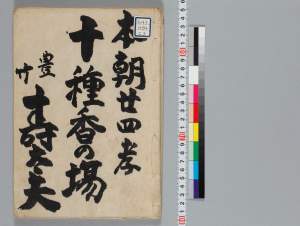 本朝廿四孝
十種香の場
豊竹
寿太夫